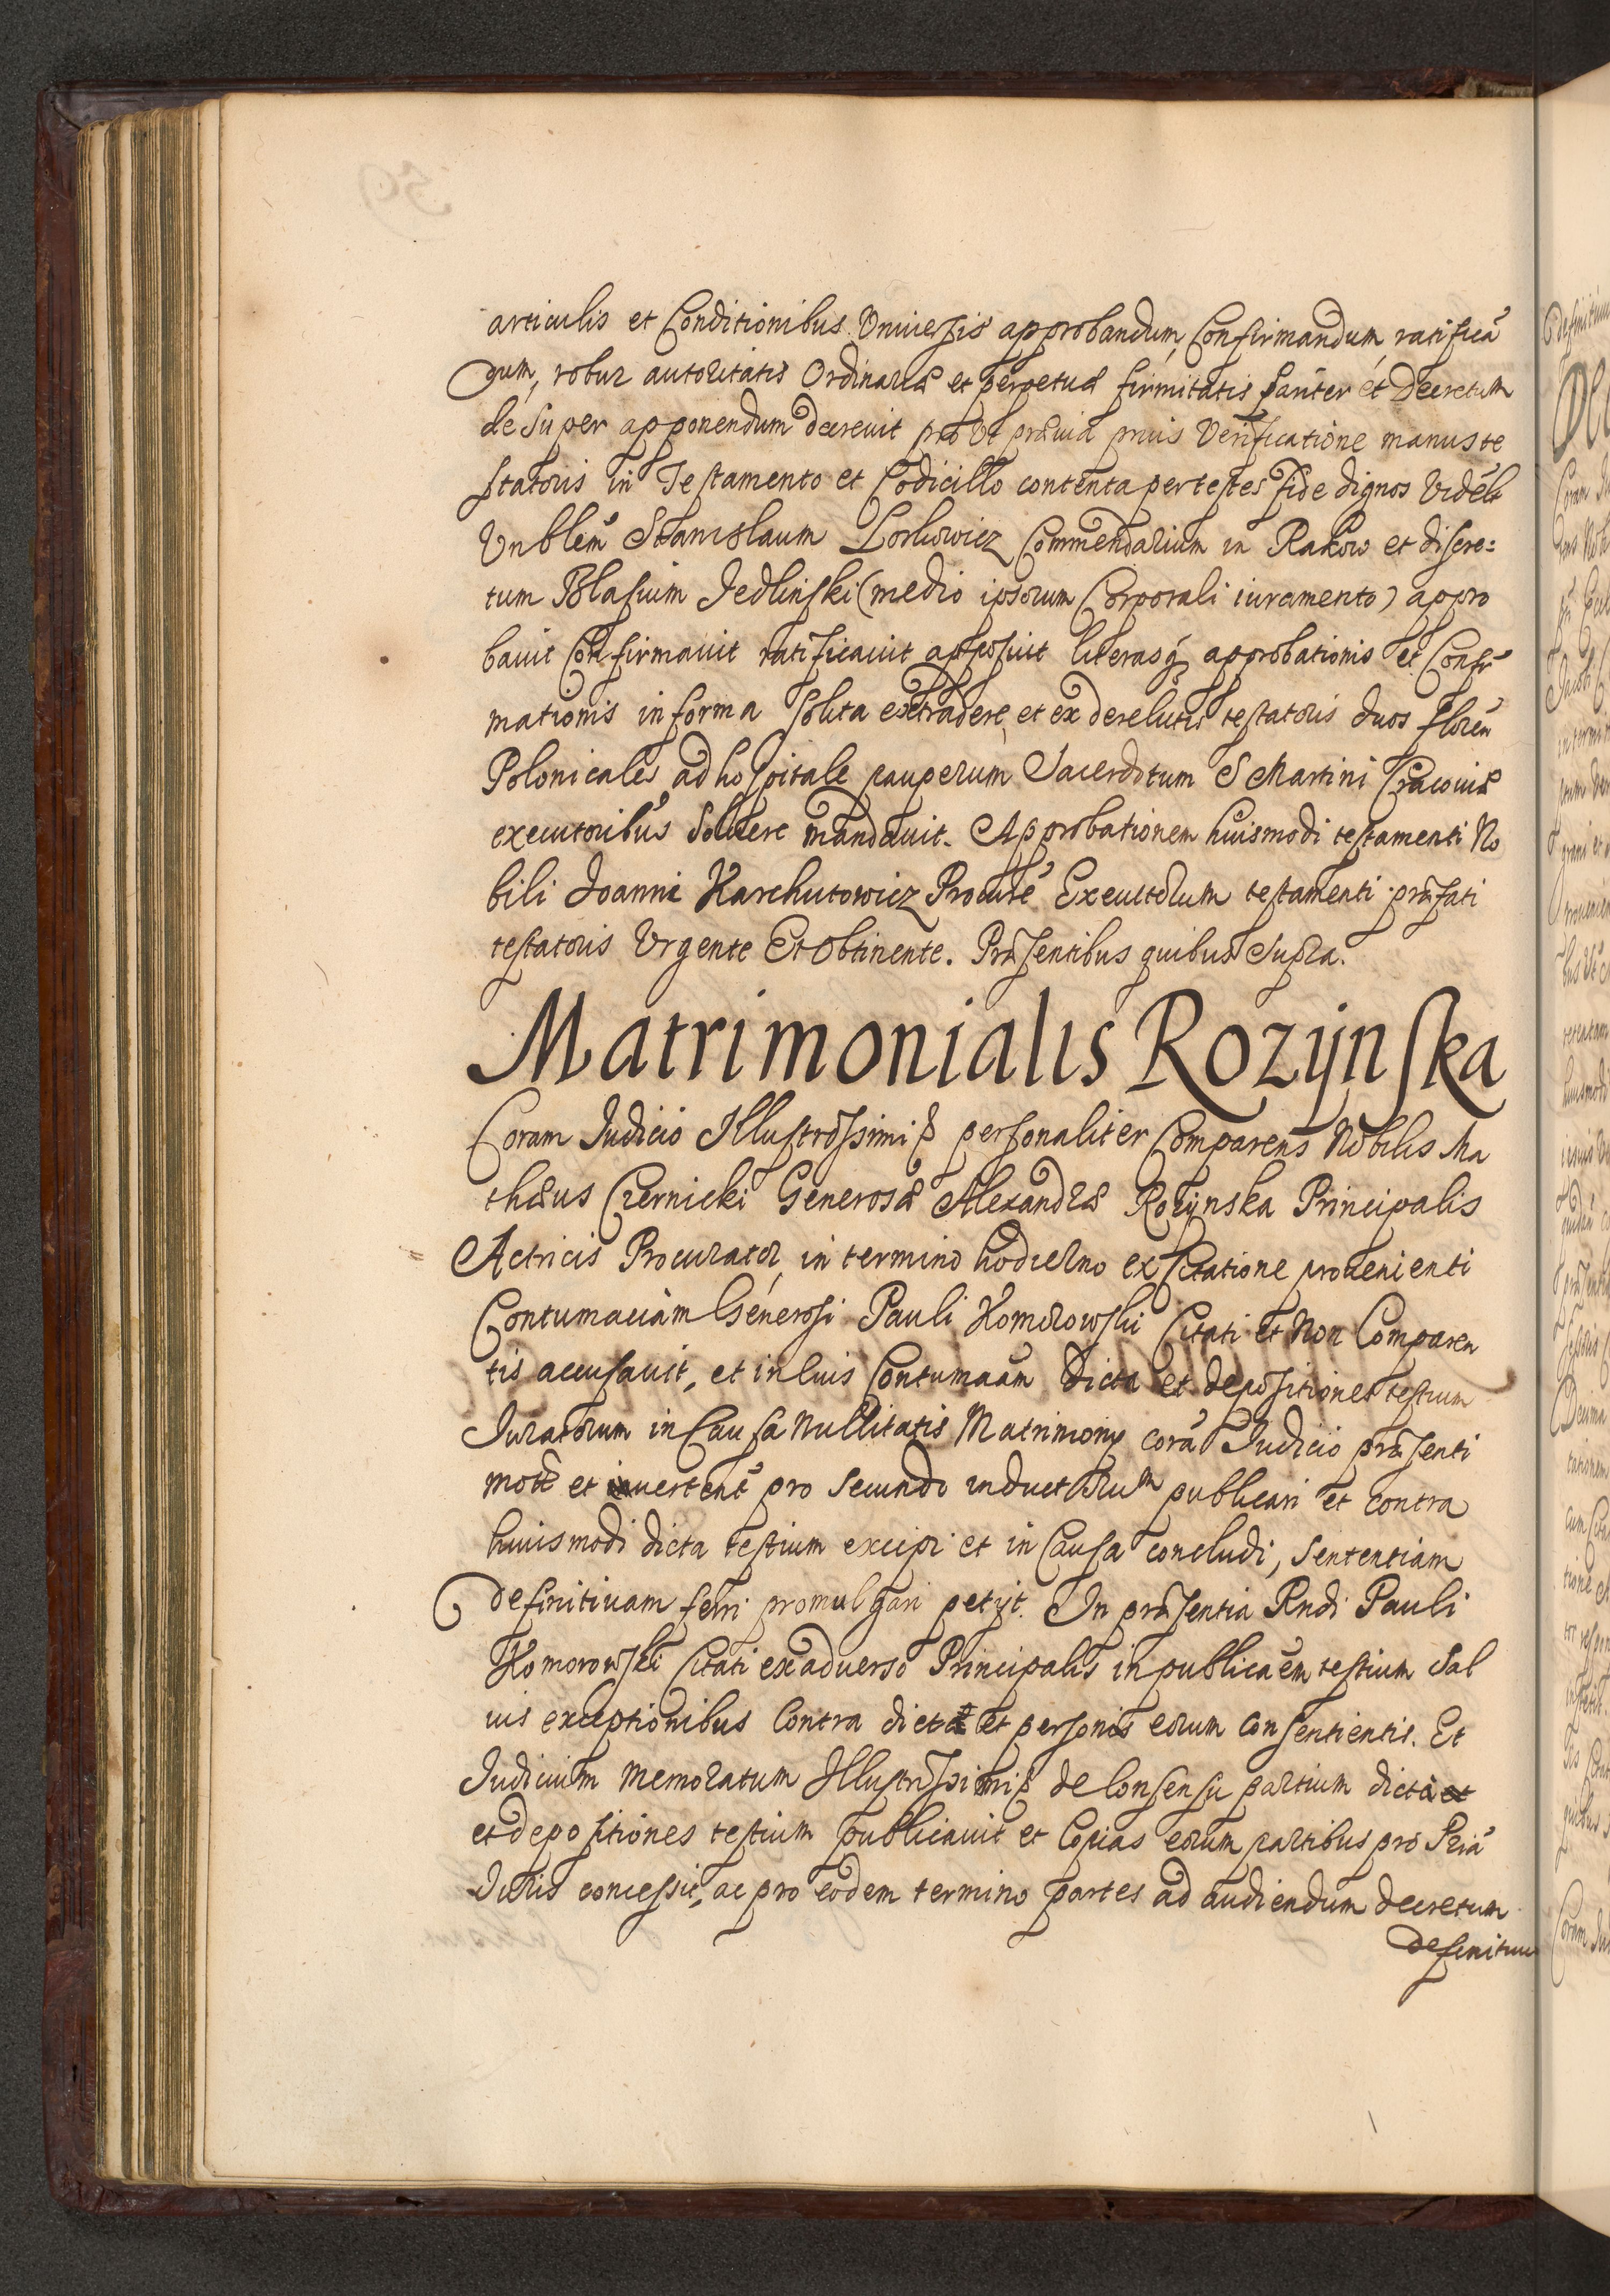 articulis et Conditionibus Vniuersis approbandum, Confirmandum, ratificā
dum, robur autoritatis Ordinariæ et perpetuæ firmitatis pariter et Decretum
desuper apponendum decreuit prout præuia prius Verificatione manus te
statoris in Testamento et Codicillo contenta per testes fide dignos Vidēlt
Vnblēm Stanislaum Lorkowicz Commendarium in Rakow et discre=
tum Blasium Jedlinski (medio ipsorum Corporali iuramento) appro
bauit Confirmauit ratificauit apposuit literasq̃ approbationis et Confir
mationis in forma solita extradere, et ex derelictis testatoris duos florēn
Polonicales ad hospitale pauperum Sacerdotum S Martini Cracouiæ
executoribus soluere mandauit. Approbationem huismodi testamenti No
bili Joanni Karchutowicz Procurē Executorum testamenti præfati
testatoris Vrgente Et Obtinente. Præsentibus quibus Supra.
Matrimonialis Rozÿnska
Coram Judicio Illustrissimi personaliter Comparens Nobilis Ma
thæus Czernicki Generosæ Alexandræ Rozÿnska Principalis
Actricis Procurator, in termino hodierno ex Citatione prouenienti
Contumaciam Generosi Pauli Komorowski Citati et Non Comparen
tis accusauit, et in huis Contumaām Dicta et depositiones testium
Juratorum in Causa Nullitatis Matrimonÿ corā Judicio præsenti
motē et uertentē pro secundo inductorum publicari et contra
huismodi dicta testium excipi et in Causa concludi, Sententiam
definitiuam ferri promulgari petÿt. In præsentia Rndi Pauli
Komorowski Citati ex aduerso Principalis in publicāem testium Sal
uis exceptionibus Contra dicta et personas eorum Consentientis. Et
Judicium memoratum Illustrissimi de Consensu partium dicta
et depositiones testium publicauit et Copias eorum partibus pro
Juris concessit, ac pro eodem termino partes ad audiendum decretum
definitiuu